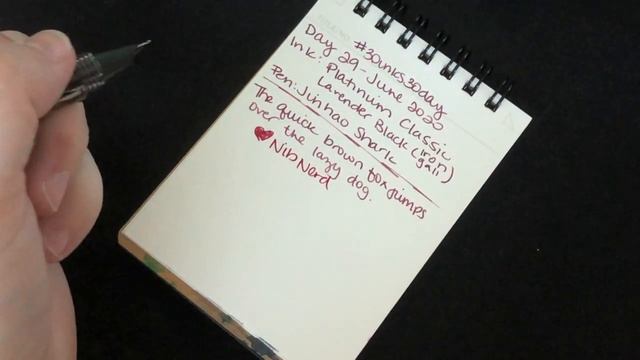 #30inks30day
Day 29 - June 2020
Ink: Platinum Classic
Lavender Black (iron gall)
Pen: Jinhao Shark
The quick brown fox jumps
over the lazy dog.
❤ Nib Nerd